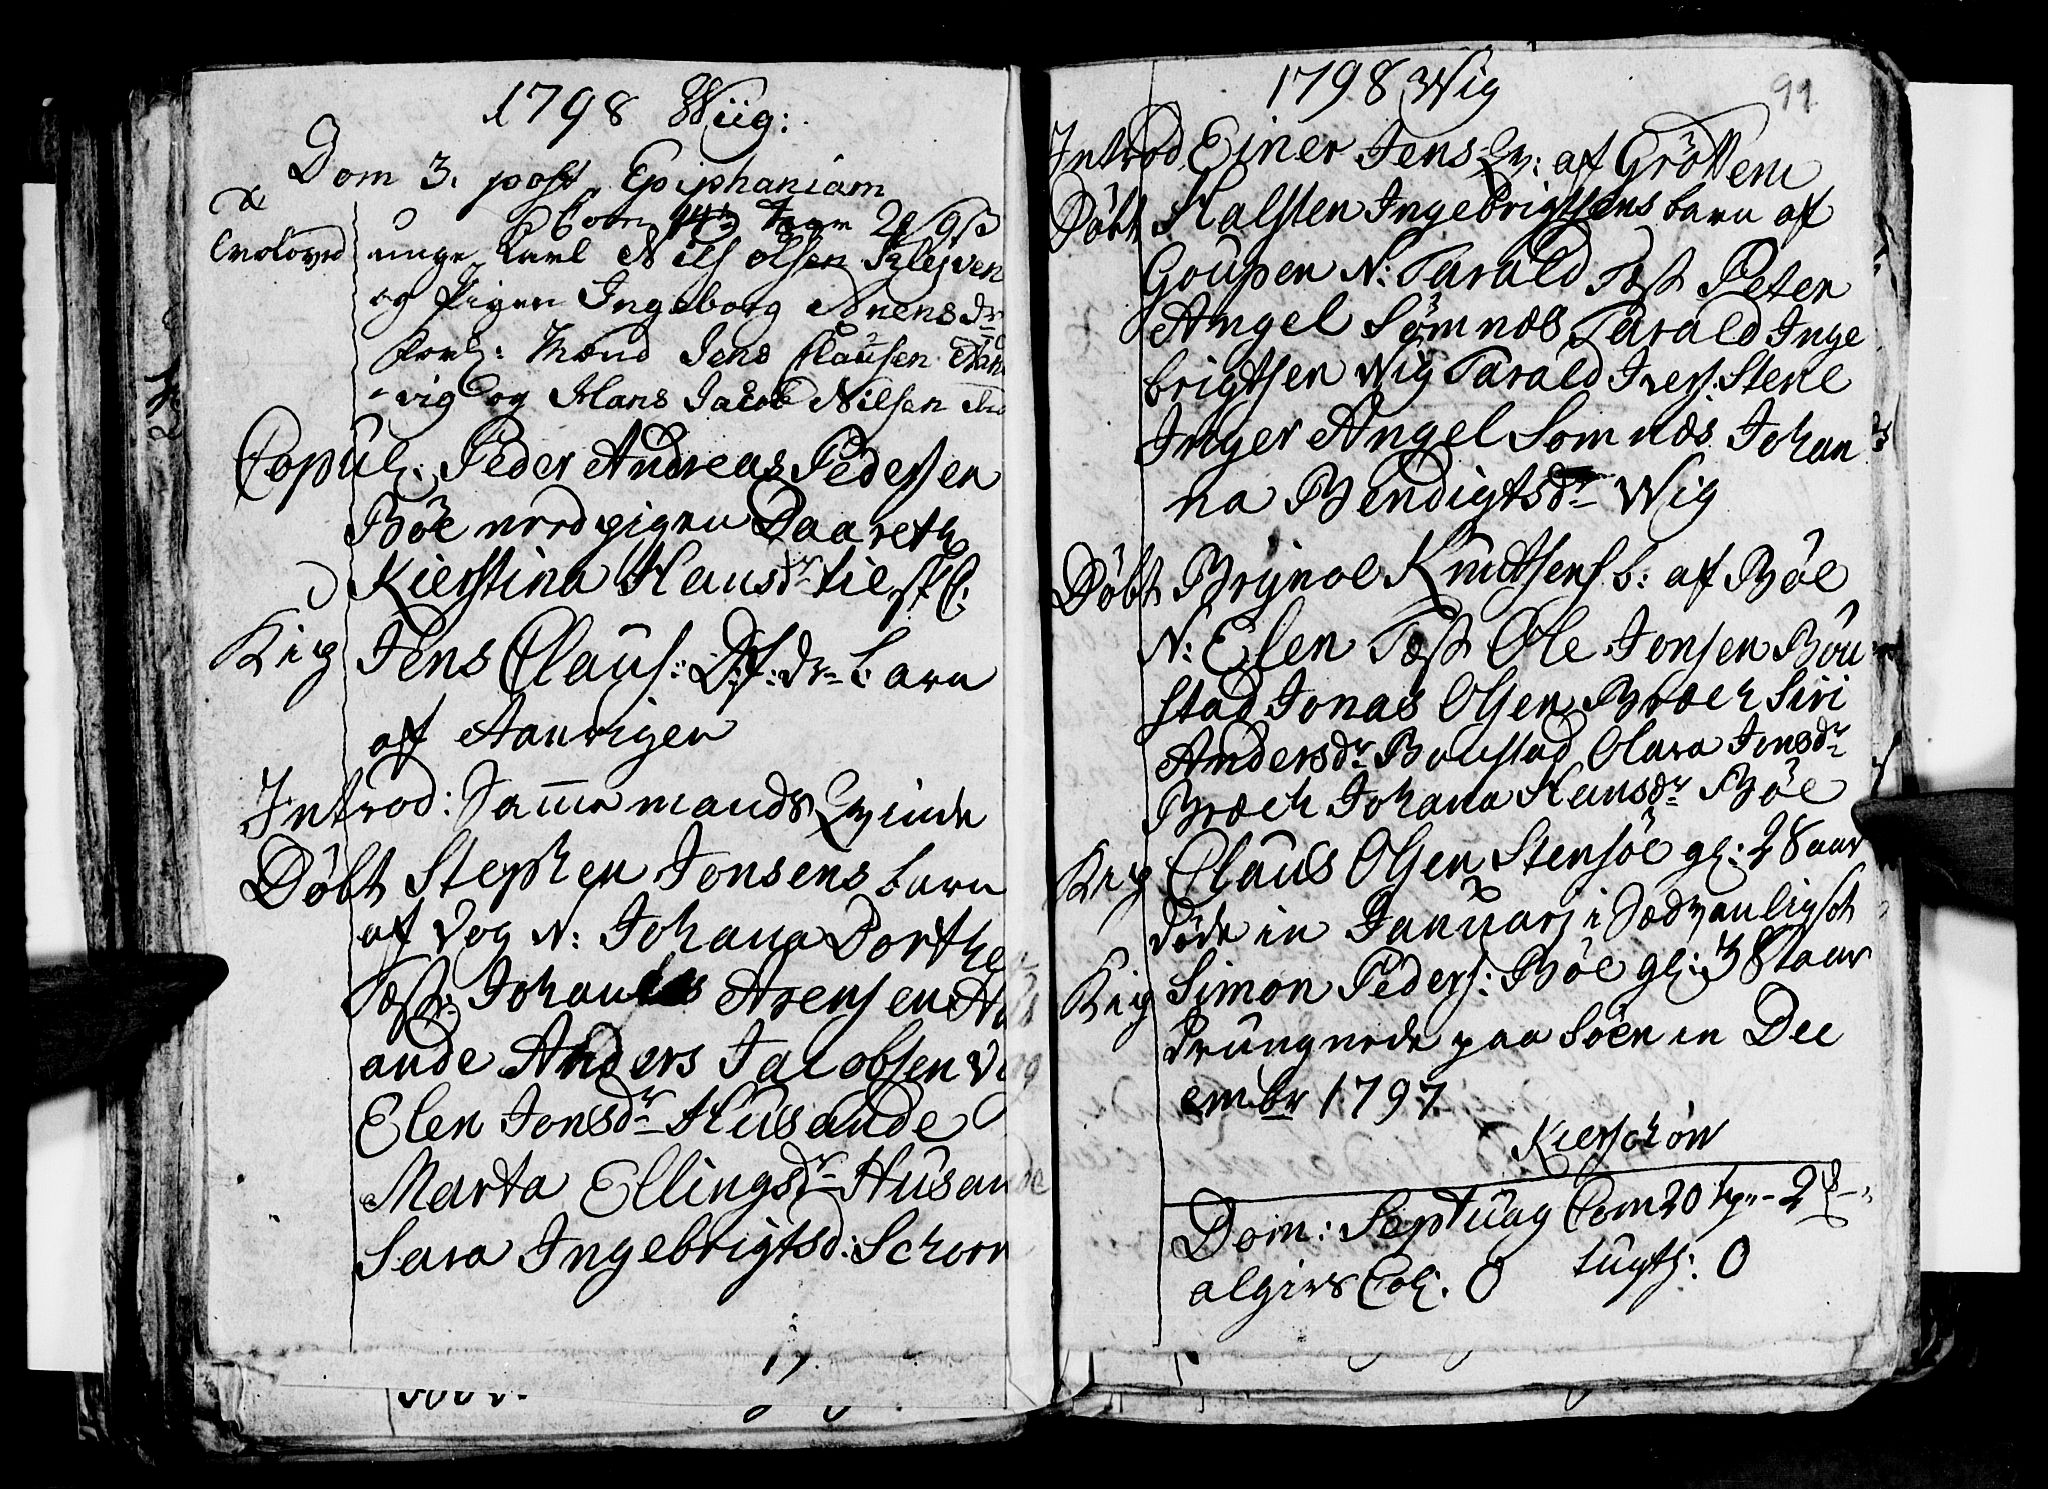 1798 Wiig:
Dom 3. post Epiphaniam
Com
Troloved unge Karl Nils Olsen Klejven
og Pigen Ingeborg Arensdr
Forl: Mænd Jens Clausen Aan
vig og Hans Jacob Nilsen
Copul. Peder Andreas Pedersen
Böe med pigen Daareth
Kierstina Hansdr
Kig Jens Claus: D: f: dr barn
af Aanvigen
Introd: Samme mands Qvinde
Döbt Stephen Jonsens barn
af Vog N: Johana Dorthe
Test: Johannes Arensen Hu
ande Anders Jacobsen V
Elen Jonsdr Husande
Marta Ellingsdr Husan
Sara Ingebrigtsd: Schorr
17.
1798 Wig
91
Introd Einer Jens Qv: af Gröttem
Döbt Halsten Ingebrigtsens barn af
Goupen N: Tarald Test Peter
Angel Sömnæs Tarald Inge
brigtsen Wig Tarald Ivers: Stene
Inger Angel Somnæs Johan
na Bendigtsdr Wig
Döbt Brynol Knudtsens b: af Böe
N: Elen Test Ole Jonsen Bou
stad Jonas Olsen Bræch Siri
Andersdr Boustad Olava Jonsdr
Bræch Johana Hansdr Böe
Kig Claus Olsen Stensöe gl: 28 aar
döde in Januarj i Sædvanligsot
Kig Simon Peders: Böe gl: 38 aar
Drungnede paa Söen in Dec
embr 1797
Kierschow
Dom: Septuag Com 20
algirs Col. 0 tugth: 0